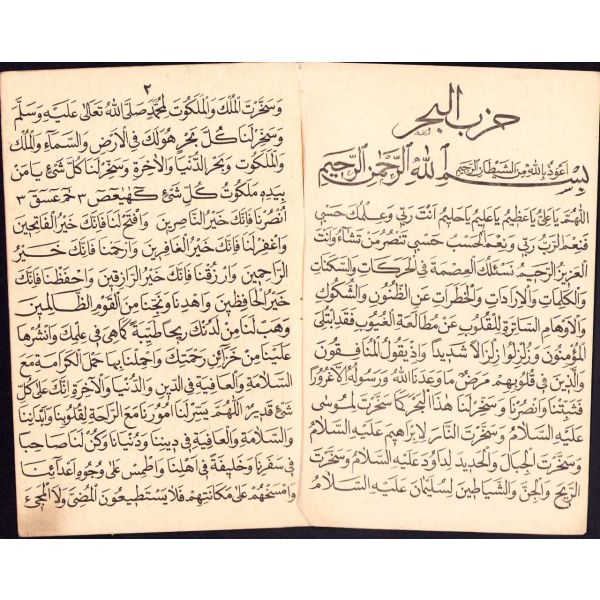 حزب البحر
اعوذ بالله من الشيطان الرجيم
بسم الله الرحمن الرحيم
اللهم يا علي يا عظيم يا عليم يا حليم انت ربي وعلمك حسبي
فنعم الرب ربي ونعم الحسب حسبي تنصر من تشاء وانت
العزيز الرحيم نسئلك العصمة في الحركات والسكنات
والكلمات والارادات والخطرات عن الظنون والشكوك
والاوهام الساترة للقلوب عن مطالعة الغيوب فقد ابتلي
المؤمنون وزلزلوا زلزالا شديدا واذ يقول المنافقون
والذين في قلوبهم مرض ما وعدنا الله ورسوله الا غرورا
فثبتنا وانصرنا وسخر لنا هذا البحر كما سخرت لموسى
عليه السلام وسخرت النار لابراهيم عليه السلام
وسخرت الجبال والحديد لداود عليه السلام وسخرت
الريح والجن والشياطين لسليمان عليه السلام
٢
وسخرت الملك والملكوت لمحمد صلى الله تعالى عليه وسلم
وسخر لنا كل بحر هو لك في الارض والسماء والملك
والملكوت وبحر الدنيا والاخرة وسخر لنا كل شئ يا من
بيده ملكوت كل شئ كهيعص ٣ حم عسق ٣
انصرنا فانك خير الناصرين وافتح لنا فانك خير الفاتحين
واغفر لنا فانك خير الغافرين وارحمنا فانك خير
الراحمين وارزقنا فانك خير الرازقين واحفظنا فانك
خير الحافظين واهدنا ونجنا من القوم الظالمين
وهب لنا من لدنك ريحا طيبة كما هي في علمك وانشرها
علينا من خزائن رحمتك واحملنا بها حمل الكرامة مع
السلامة والعافية في الدين والدنيا والاخرة انك على كل
شئ قدير اللهم يسر لنا امورنا مع الراحة لقلوبنا وابداننا
والسلامة والعافية في ديننا ودنيانا وكن لنا صاحبا
في سفرنا وخليفة في اهلنا واطمس على وجوه اعدائنا
وامسخهم على مكانتهم فلا يستطيعون المضي ولا المجئ